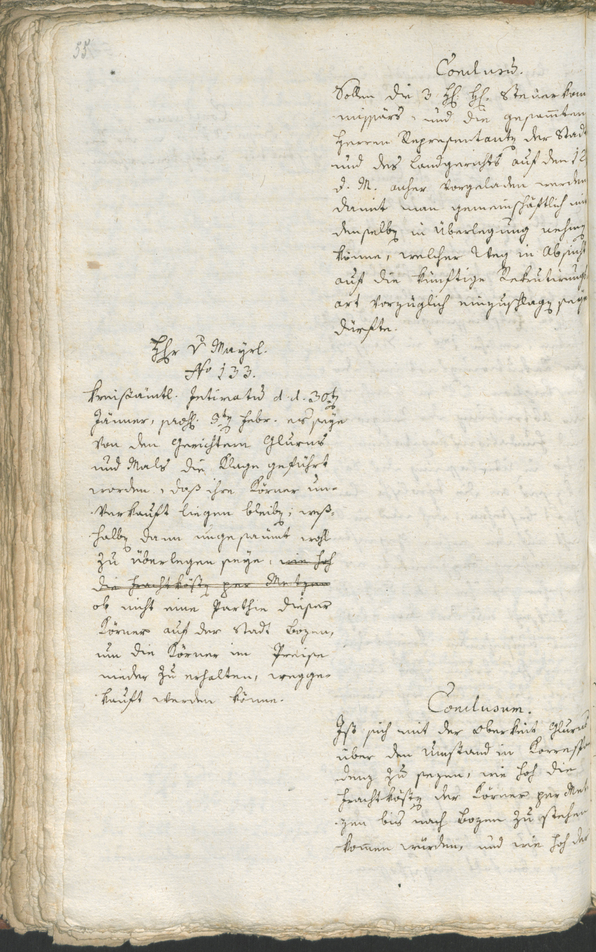 55
Conclusum.
Sollen die 3 H. H. Steuerkom
missärs, und die gesammten
Herren Repræsentanten der Stadt
und des Landgerichts auf den 12
d. M. anher vorgeladen werden
damit man gemeinschäftlich mit
denselben in Überlegung nehmen
könne, welcher Weg in Absicht
auf die künftige Rekrutirungs
art vorzüglich einzuschlagen seyn
dürfte.
Hr v Mayrl.
No 133.
Kreisämtl. Intimatum d. d. 30ten
Jänner, præs. 9ten Febr. es seye
von den Gerichtern Glurns
und Mals die Klage geführt
worden, daß ihre Körner un-
verkauft liegen bleiben, weß-
halben dann ungesäumt wohl
zu überlegen seye, wie hoh
die Frachtkösten per Metzen
ob nicht eine Parthie dieser
Körner auf der Stadt Bozen,
um die Körner im Preise
nieder zu erhalten, wegge-
kauft werden könne.
Conclusum.
Ist sich mit der Oberkeit Glurns
über den Umstand in Korrespon
denz zu sezen, wie hoch die
Frachtkösten der Körner per Met
zen bis nach Bozen zu stehen
kommen würden, und wie hoh der